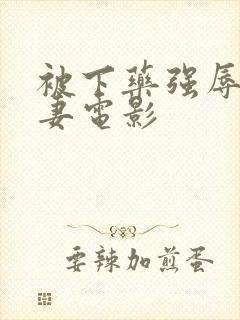 被下藥强辱
妻電影
要辣加煎蛋